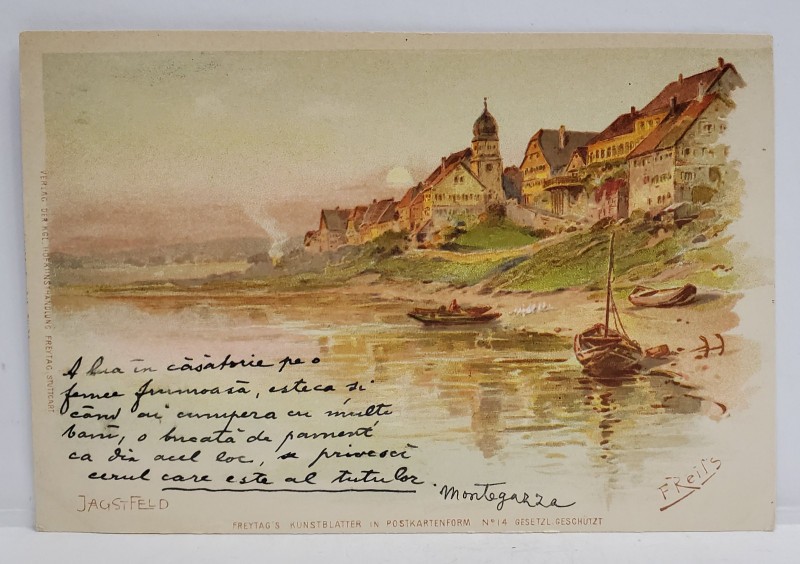 VERLAG DER KGL. HOFKUNSTHANDLUNG FREYTAG. STUTTGART
A lua in căsătorie pe o
femee frumoasă, esteca si
când ai cumpera cu multi
bani, o bucată de pament
ca din acel loc, sa privesci
cerul care este al tutulor.
Montegazza
JAGSTFELD
F Reiß
FREYTAG'S KUNSTBLÄTTER IN POSTKARTENFORM Nº 14 GESETZL. GESCHÜTZT